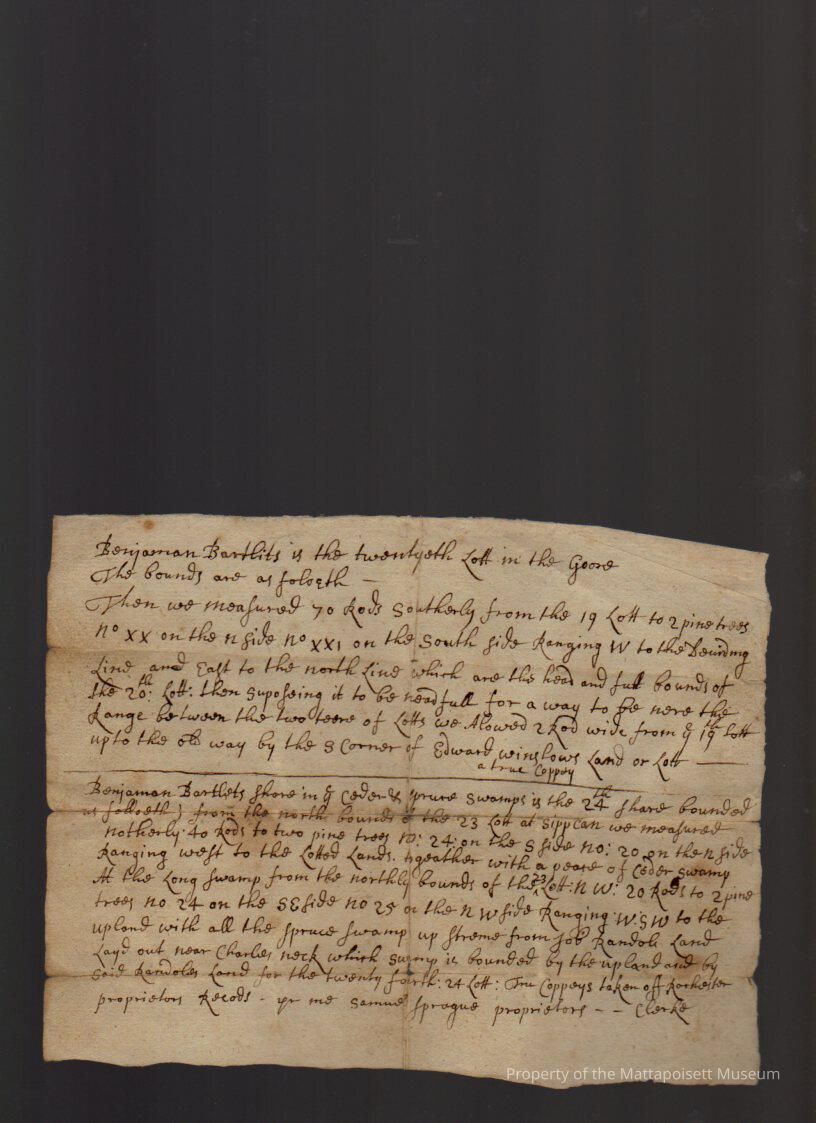 Benjaman Bartlits is the twentyeth Lott in the Goore
The bounds are as foloeth —
Then we measured 70 Rods Southerly from the 19 Lott to 2 pine trees
no XX on the N side no XXI on the South side Ranging W to the Deviding
Line and East to the north Line which are the head and full bounds of
the 20th: Lott: then suposeing it to be neadfull for a way to be nere the
Range between the two teere of Lotts we Alowed 2 Rod wide from ye 19th Lott
up to the old way by the S Corner of Edward winslows Land or Lott —
a true Coppey
Benjaman Bartlets share in ye Ceder & spruce swamps is the 24th share bounded
as folloeth; from the north bounds of the 23 Lott at Sippcan we measured
Notherly 40 Rods to two pine trees No: 24: on the S side no: 20 on the N side
Ranging west to the Lotted Lands. together with a peace of Ceder swamp
At the Long swamp from the northly bounds of the 23 Lott: N W: 20 Rods to 2 pine
trees no 24 on the SE side no 25 on the N W side Ranging W:S W to the
upland with all the spruce swamp up streme from Job Randols Land
Layd out near Charles neck which swamp is bounded by the upland and by
said Randoles Land for the twenty forth: 24 Lott: Tru Coppeys taken off Rochester
proprietors Recods - pr me Samuel Sprague proprietors - - Clerke
Property of the Mattapoisett Museum